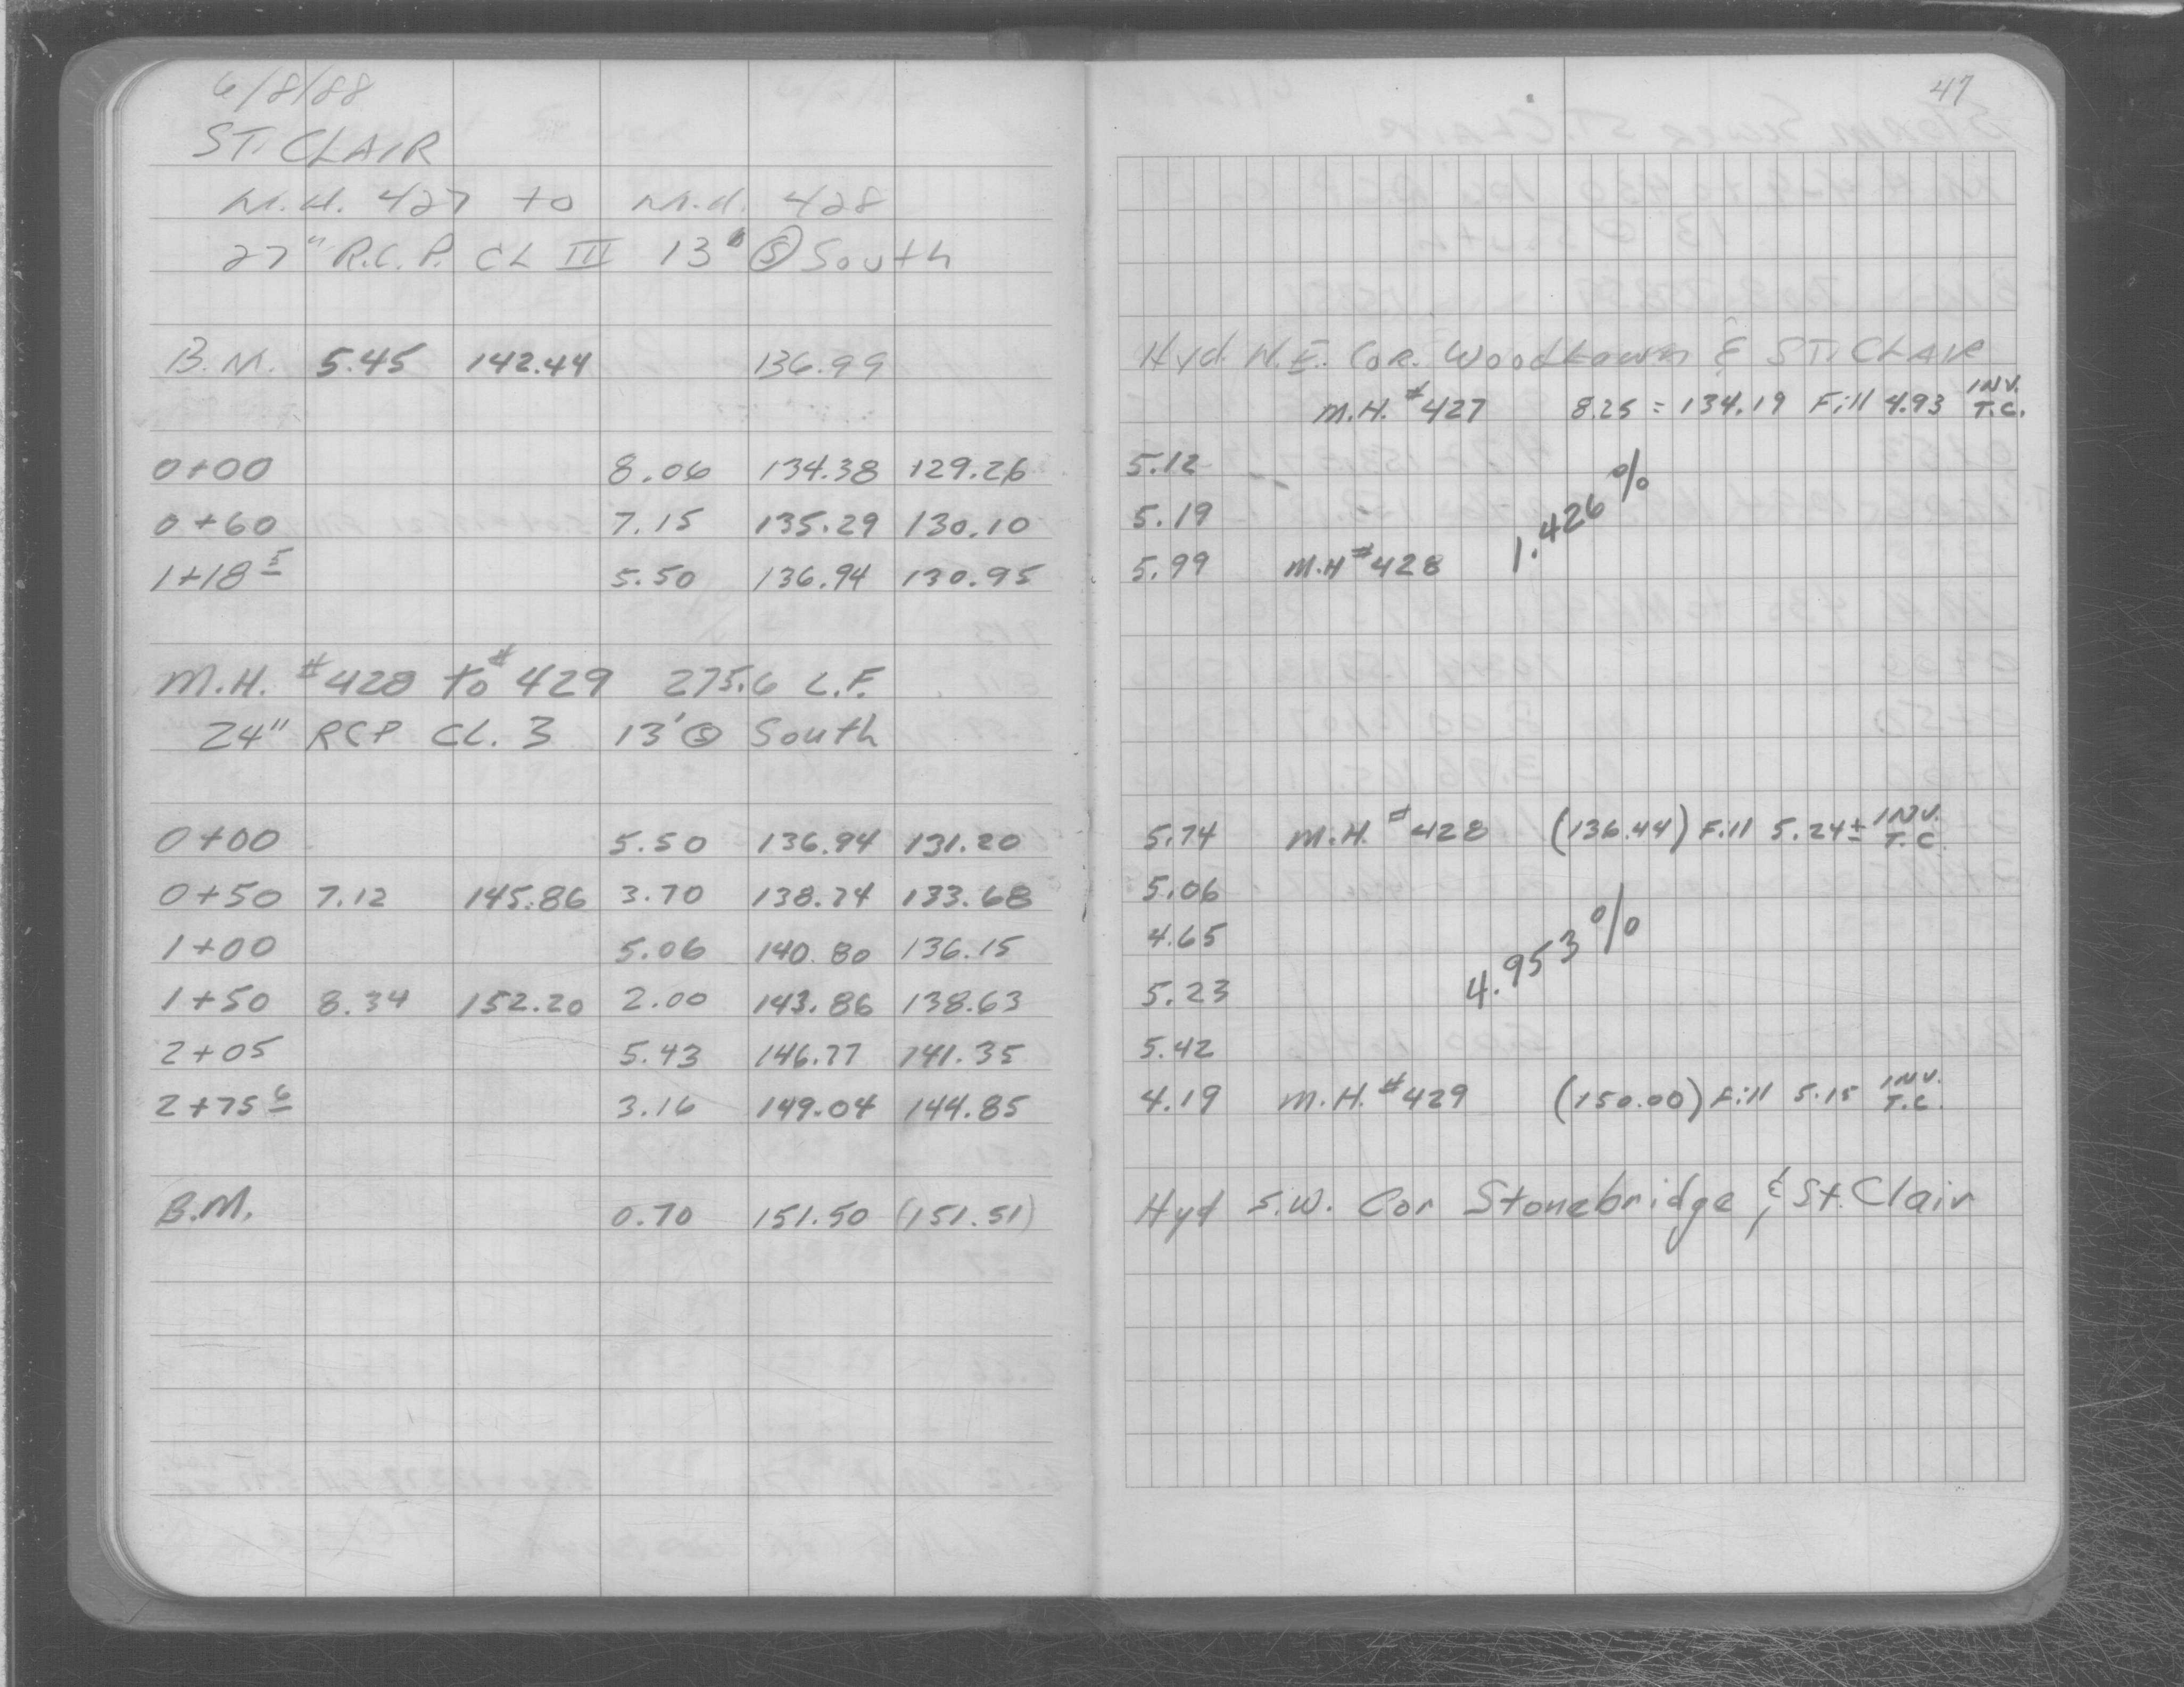 6/8/88
ST. CLAIR
M.H. 427 to M.H. 428
27" R.C.P. CL III 13' Ⓢ South
B.M. 5.45 142.44 136.99
0+00 8.06 134.38 129.26
0+60 7.15 135.29 130.10
1+18 5 5.50 136.94 130.95
M.H. #428 to #429 275.6 L.F.
24" RCP CL. 3 13' Ⓢ South
0+00 5.50 136.94 131.20
0+50 7.12 145.86 3.70 138.74 133.68
1+00 5.06 140.80 136.15
1+50 8.34 152.20 2.00 143.86 138.63
2+05 5.43 146.77 141.35
2+75 6 3.16 149.04 144.85
B.M. 0.70 151.50 (151.51)
47
Hyd. N.E. Cor. Woodlawn & ST. CLAIR
M.H. #427 8.25 = 134.19 Fill 4.93 INV. T.C.
5.12
5.19 1.426%
5.99 M.H #428
5.74 M.H. #428 (136.44) Fill 5.24± INV. T.C.
5.06
4.65 4.953%
5.23
5.42
4.19 M.H. #429 (150.00) Fill 5.15 INV. T.C.
Hyd S.W. Cor Stonebridge & St. Clair